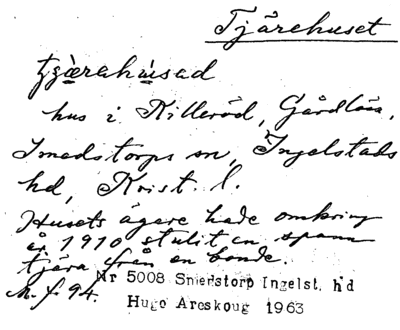 Tjärehuset
hus i Killeröd, Gårdlösa,
Smedstorps sn, Ingelstads
hd, Krist. l.
Husets ägare hade omkring
år 1910 stulit en spann
tjära från en bonde.
M. f. 94.
Nr 5008 Smedstorp Ingelst. hd
Hugo Areskoug 1963